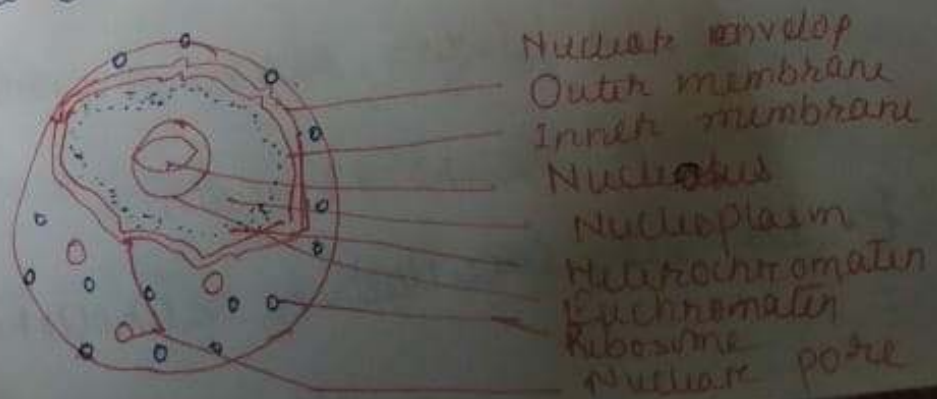 Nuclear envelop
Outer membrane
Inner membrane
Nucleolus
Nucleoplasm
Heterochromatin
Euchromatin
Ribosome
Nuclear pore